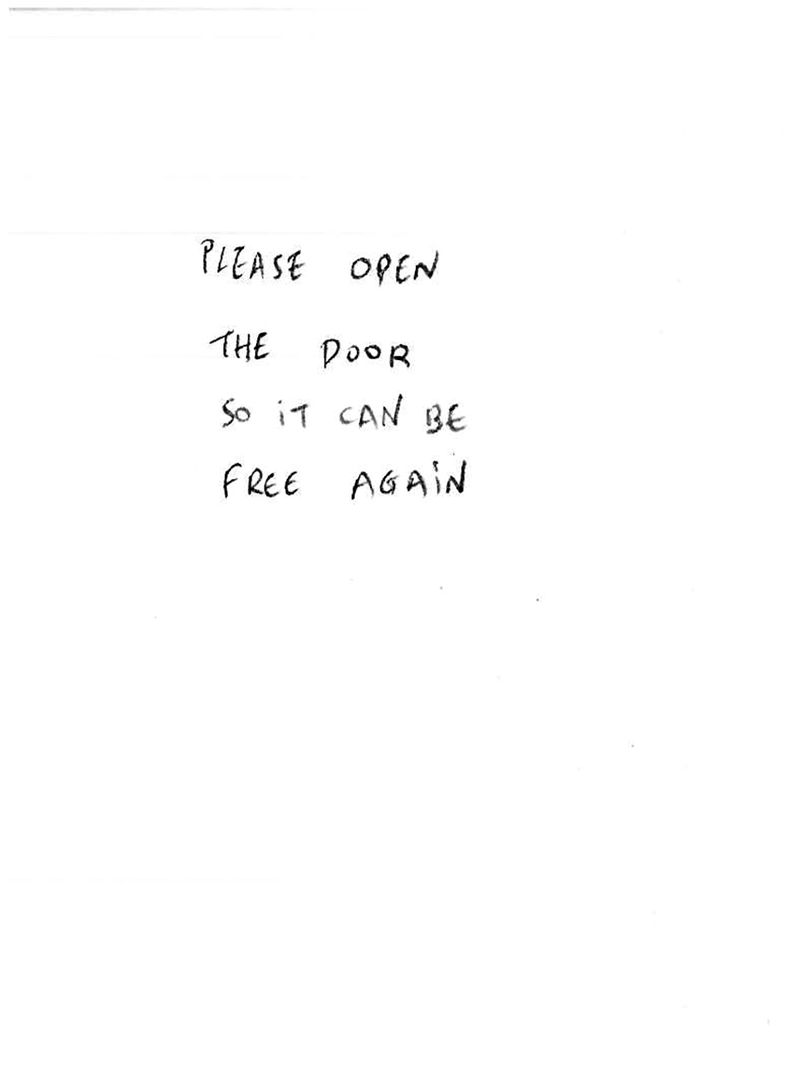 PLEASE OPEN
THE DOOR
SO iT CAN BE
FREE AGAiN